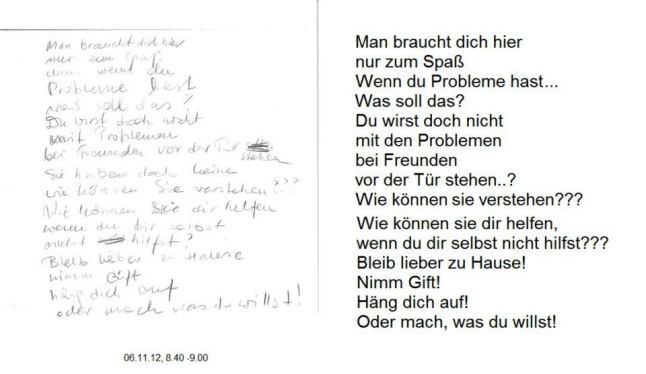 Man braucht dich hier
nur zum Spaß
denn wenn du
Probleme hast
was soll das?
Du wirst doch nicht
mit Problemen
bei Freunden vor der Tür
stehen
Sie haben doch keine
wie können Sie verstehen???
Wie können Sie dir helfen
wenn du dir selbst
nicht hilfst?
Bleib lieber zu Hause
nimm Gift
häng dich auf
oder mach was du willst!
06.11.12, 8.40 -9.00
Man braucht dich hier
nur zum Spaß
Wenn du Probleme hast...
Was soll das?
Du wirst doch nicht
mit den Problemen
bei Freunden
vor der Tür stehen..?
Wie können sie verstehen???
Wie können sie dir helfen,
wenn du dir selbst nicht hilfst???
Bleib lieber zu Hause!
Nimm Gift!
Häng dich auf!
Oder mach, was du willst!